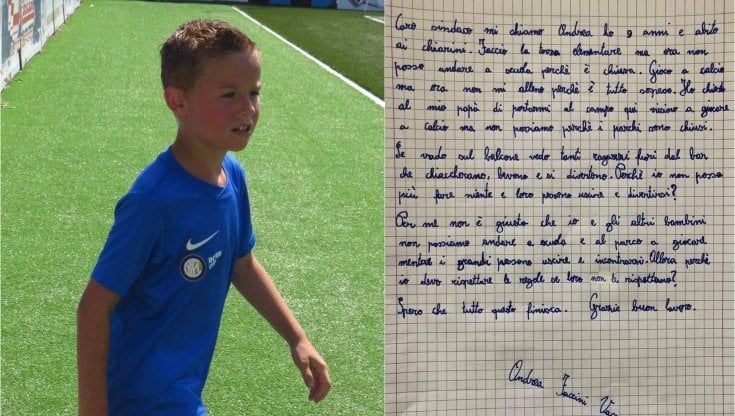 Caro sindaco mi chiamo Andrea ho 9 anni e abito
ai chiarini. Faccio la terza elementare ma ora non
posso andare a scuola perchè è chiusa. Gioco a calcio
ma ora non mi alleno perchè è tutto sospeso. Ho chiesto
al mio papà di portarmi al campo qui vicino a giocare
a calcio ma non possiamo perchè i parchi sono chiusi.
Se vado sul balcone vedo tanti ragazzi fuori dal bar
che chiaccherano, bevono e si divertono. Perchè io non posso
più fare niente e loro possono uscire e divertirsi?
Per me non è giusto che io e gli altri bambini
non possiamo andare a scuola e al parco a giocare
mentre i grandi possono uscire e incontrarsi. Allora perchè
io devo rispettare le regole se loro non le rispettano?
Spero che tutto questo finisca. Grazie buon lavoro.
Andrea